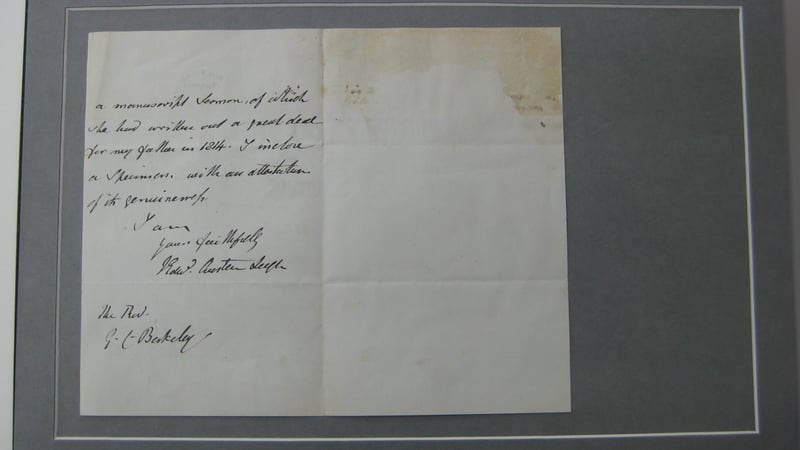 a manuscript Sermon, of which
she had written out a great deal
for my father in 1814. I inclose
a Specimen, with an attestation
of its genuineness.
I am
yours faithfully
Austen Leigh
The Rev.
G. C Berkeley